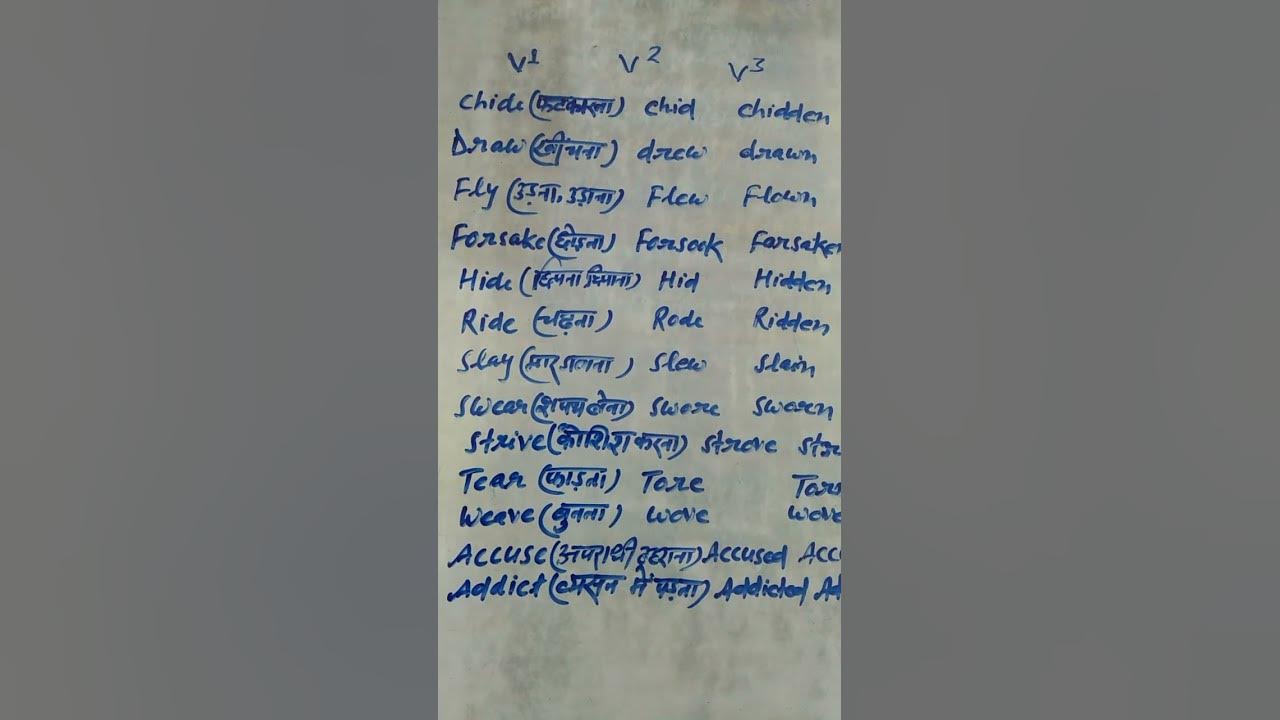 V1 V2 V3
Chide (फटकारना) chid chidden
Draw (खींचना) drew drawn
Fly (उड़ना, उड़ाना) Flew Flown
Forsake (छोड़ना) Forsook Forsaken
Hide (छिपना छिपाना) Hid Hidden
Ride (चढ़ना) Rode Ridden
Slay (मार डालना) Slew Slain
Swear (शपथ लेना) Swore Sworn
Strive (कोशिश करना) Strove
Tear (फाड़ना) Tore
Weave (बुनना) Wove
Accuse (अपराधी ठहराना) Accused
Addict (व्यसन में पड़ना) Addicted